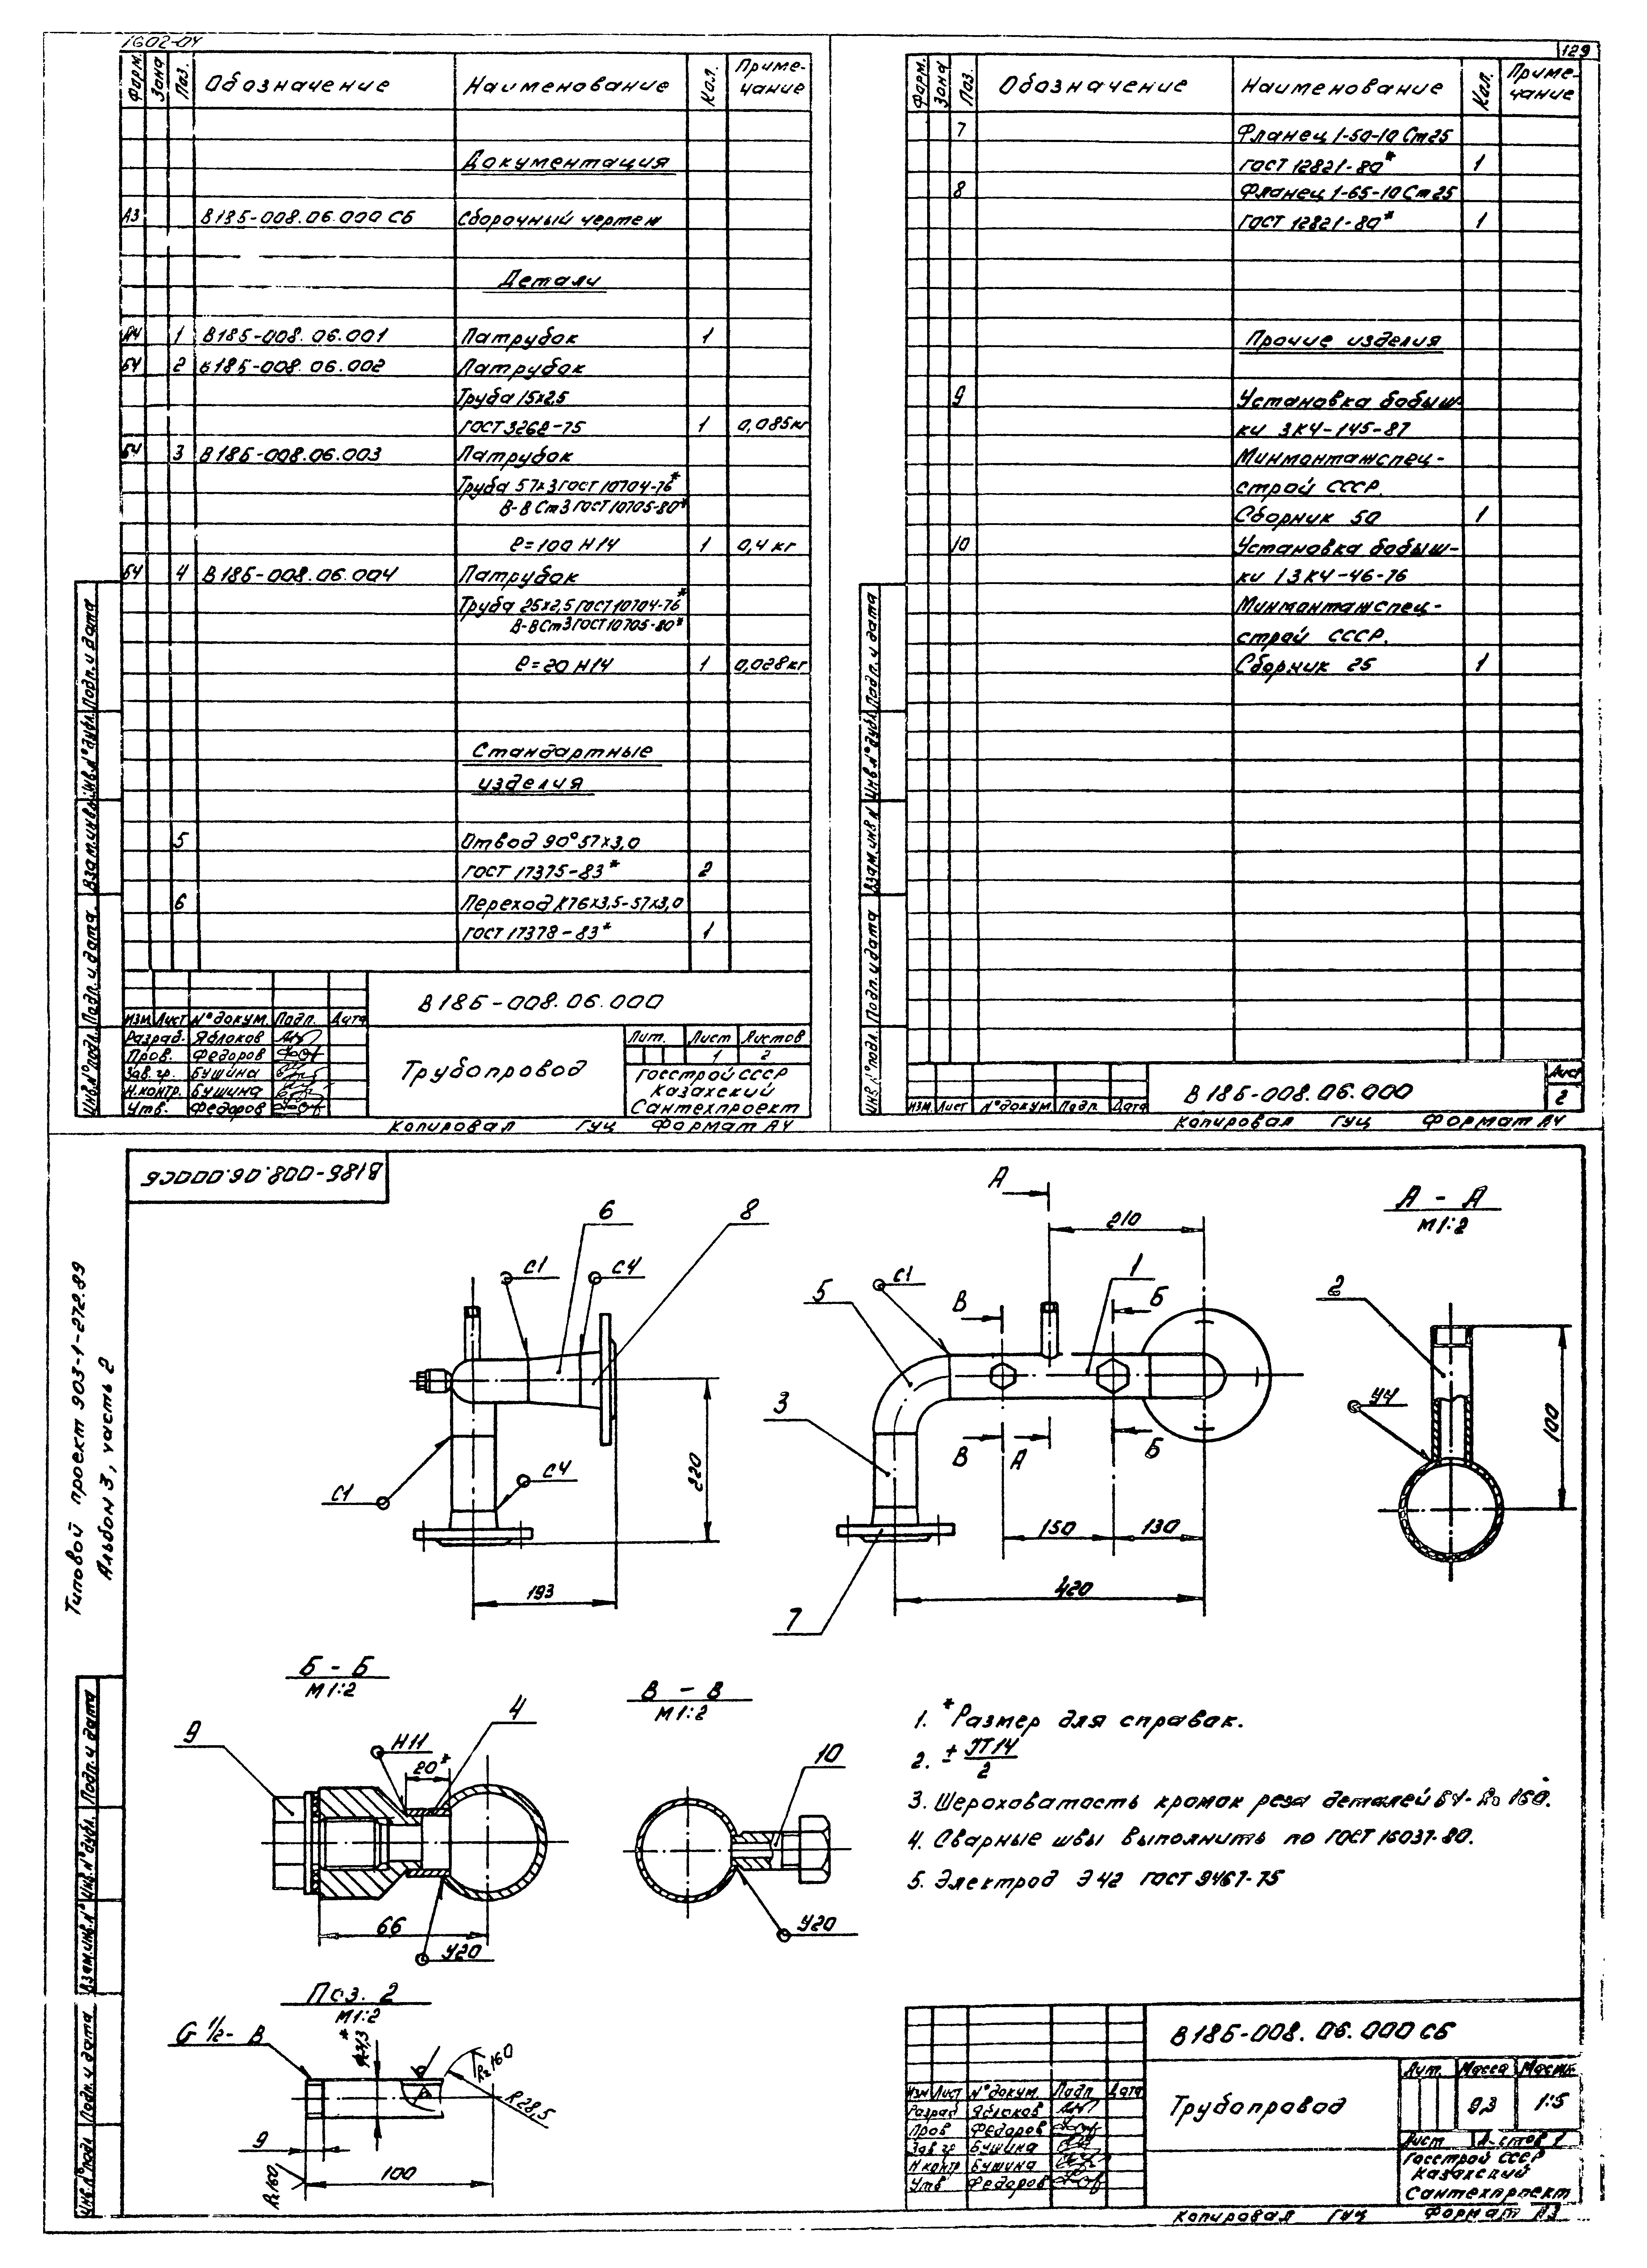 1602-04
129
Форм. Зона Поз. Обозначение Наименование Кол. Примечание
Документация
А3 В185-008.06.000 СБ Сборочный чертеж
Детали
А4 1 В185-008.06.001 Патрубок 1
БЧ 2 В185-008.06.002 Патрубок
Труба 15х2,5
ГОСТ 3262-75 1 0,085кг
БЧ 3 В185-008.06.003 Патрубок
Труба 57х3 ГОСТ 10704-76*
В-В Ст3 ГОСТ 10705-80*
ℓ=100 Н14 1 0,4 кг
БЧ 4 В185-008.06.004 Патрубок
Труба 25х2,5 ГОСТ 10704-76*
В-В Ст3 ГОСТ 10705-80*
ℓ=20 Н14 1 0,028кг
Стандартные
изделия
5 Отвод 90° 57х3,0
ГОСТ 17375-83* 2
6 Переход К76х3,5-57х3,0
ГОСТ 17378-83* 1
В185-008.06.000
Изм. Лист № докум. Подп. Дата
Разраб. Яблоков
Пров. Федоров
Зав. гр. Бушина
Н.контр. Бушина
Утв. Федоров
Трубопровод
Лит. Лист Листов
1 2
Госстрой СССР
Казахский
Сантехпроект
Копировал ГУЦ Формат А4
Инв.№ подл. Подп. и дата Взам.инв.№ Инв.№ дубл. Подп. и дата
Форм. Зона Поз. Обозначение Наименование Кол. Примечание
7 Фланец 1-50-10 Ст25
ГОСТ 12821-80* 1
8 Фланец 1-65-10 Ст25
ГОСТ 12821-80* 1
Прочие изделия
9 Установка бобыш-
ки ЗК4-145-87
Минмонтажспец-
строй СССР.
Сборник 50 1
10 Установка бобыш-
ки 1ЗК4-46-76
Минмонтажспец-
строй СССР.
Сборник 25 1
Инв.№ подл. Подп. и дата Взам.инв.№ Инв.№ дубл. Подп. и дата
Изм. Лист № докум. Подп. Дата
В185-008.06.000
Лист
2
Копировал ГУЦ Формат А4
В185-008.06.000СБ
Типовой проект 903-1-272.89
Альбом 3, часть 2
6 8
С1 С4
С1 С4
220
193
А
210
5 С1 1
В Б
3
В А Б
150 130
420
7
А - А
М1:2
2
У4
100
Б - Б
М1:2
9 4
Н11
20*
66
У20
В - В
М1:2
10
У20
1. *Размер для справок.
2. ± IT14/2
3. Шероховатость кромок реза деталей БЧ- Rz 160.
4. Сварные швы выполнить по ГОСТ 16037-80.
5. Электрод Э42 ГОСТ 9467-75
Поз. 2
М1:2
G ½ - В
Rz160
R28,5
9
100
Rz160
Инв.№ подл. Подп. и дата Взам.инв.№ Инв.№ дубл. Подп. и дата
В185-008.06.000 СБ
Изм Лист № докум. Подп Дата
Разраб Яблоков
Пров Федоров
Зав гр Бушина
Н контр Бушина
Утв Федоров
Трубопровод
Лит. Масса Масшт.
9,3 1:5
Лист Листов 1
Госстрой СССР
Казахский
Сантехпроект
Копировал ГУЦ Формат А3